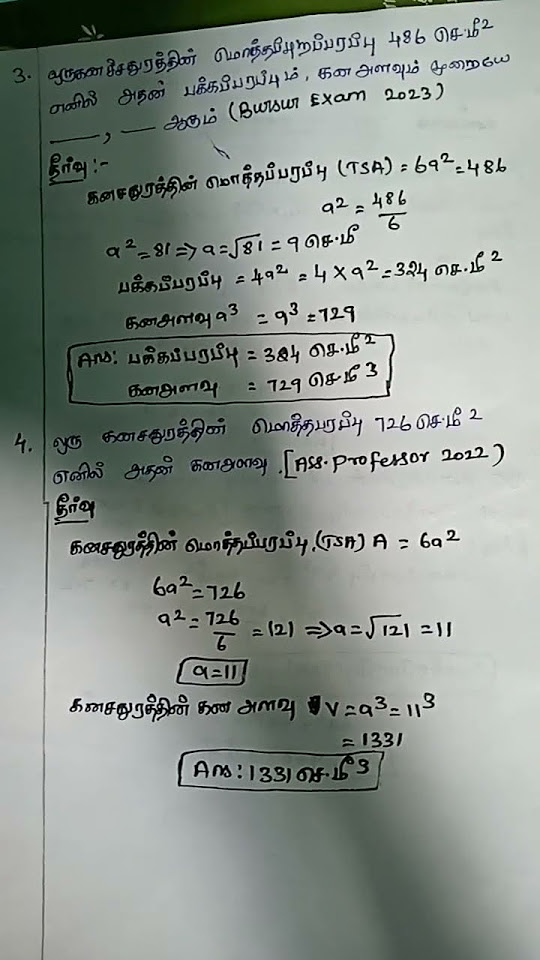 3. ஒருகனச்சதுரத்தின் மொத்தப்புறப்பரப்பு 486 செ.மீ²
எனில் அதன் பக்கப்பரப்பும், கன அளவும் முறையே
____, ___ ஆகும் ( Exam 2023)
தீர்வு :-
கனசதுரத்தின் மொத்தப்பரப்பு (TSA) = 6a² = 486
a² = 486/6
a² = 81 => a = √81 = 9 செ.மீ
பக்கப்பரப்பு = 4a² = 4 × a² = 324 செ.மீ²
கனஅளவு a³ = a³ = 729
Ans: பக்கப்பரப்பு = 324 செ.மீ²
கனஅளவு = 729 செ.மீ³
4. ஒரு கனசதுரத்தின் மொத்தபரப்பு 726 செ.மீ²
எனில் அதன் கனஅளவு. [Ass. Professor 2022)
தீர்வு
கனசதுரத்தின் மொத்தப்பரப்பு, (TSA) A = 6a²
6a² = 726
a² = 726/6 = 121 => a = √121 = 11
a = 11
கனசதுரத்தின் கண அளவு V = a³ = 11³
= 1331
Ans: 1331 செ.மீ³